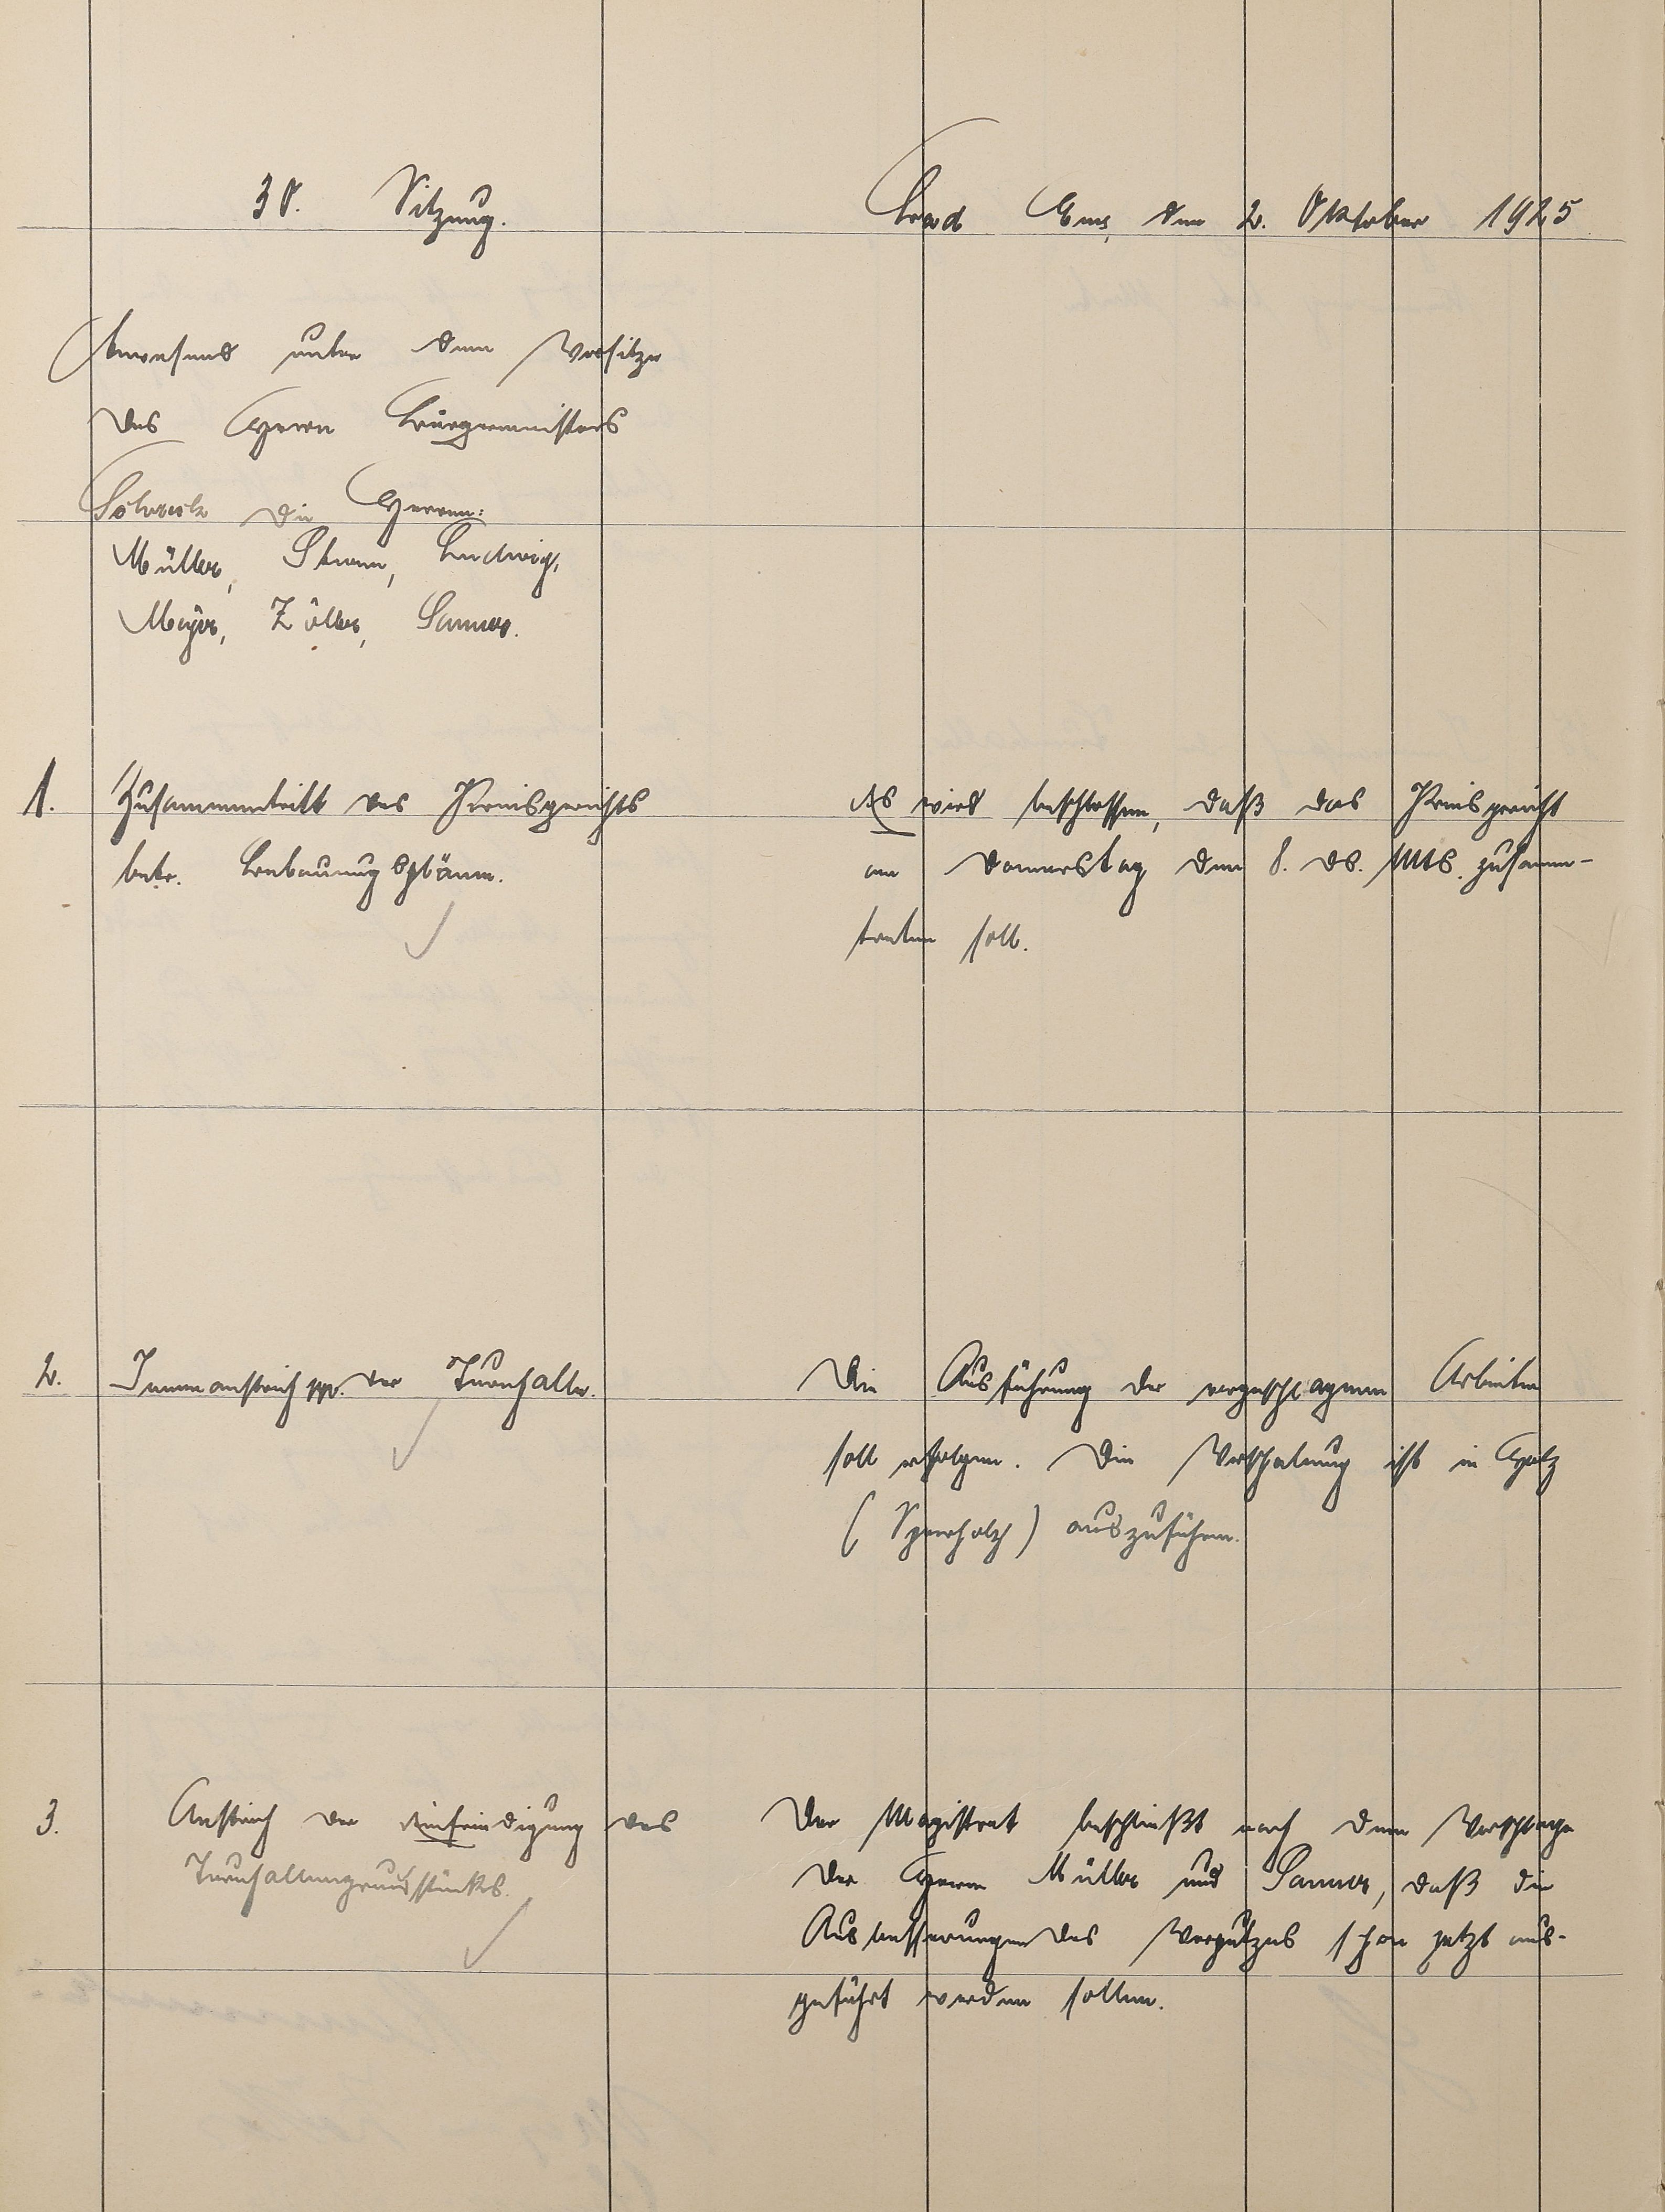 38. Sitzung.
Bad Ems, den 2. Oktober 1925
Anwesend unter dem Vorsitze
des Herrn Bürgermeisters
die Herren:
Müller, Ludwig,
Meyer, Zöller, Sanner.
1. Zusammentritt des Preisgerichts
betr. Bebauungspläne.
Es wird beschlossen, daß das Preisgericht
am Donnerstag den 8. ds. Mts. zusammen-
treten soll.
2. Innenanstrich pp. der Turnhalle.
Die Ausführung der vorgeschlagenen Arbeiten
soll erfolgen. Die Verschalung ist in Holz
(Sperrholz) auszuführen.
3. Anstrich der Einfriedigung des
Turnhallengrundstücks.
Der Magistrat beschließt nach dem Vorschlage
der Herren Müller und Sanner, daß die
Ausbesserungen des Verputzes schon jetzt aus-
geführt werden sollen.